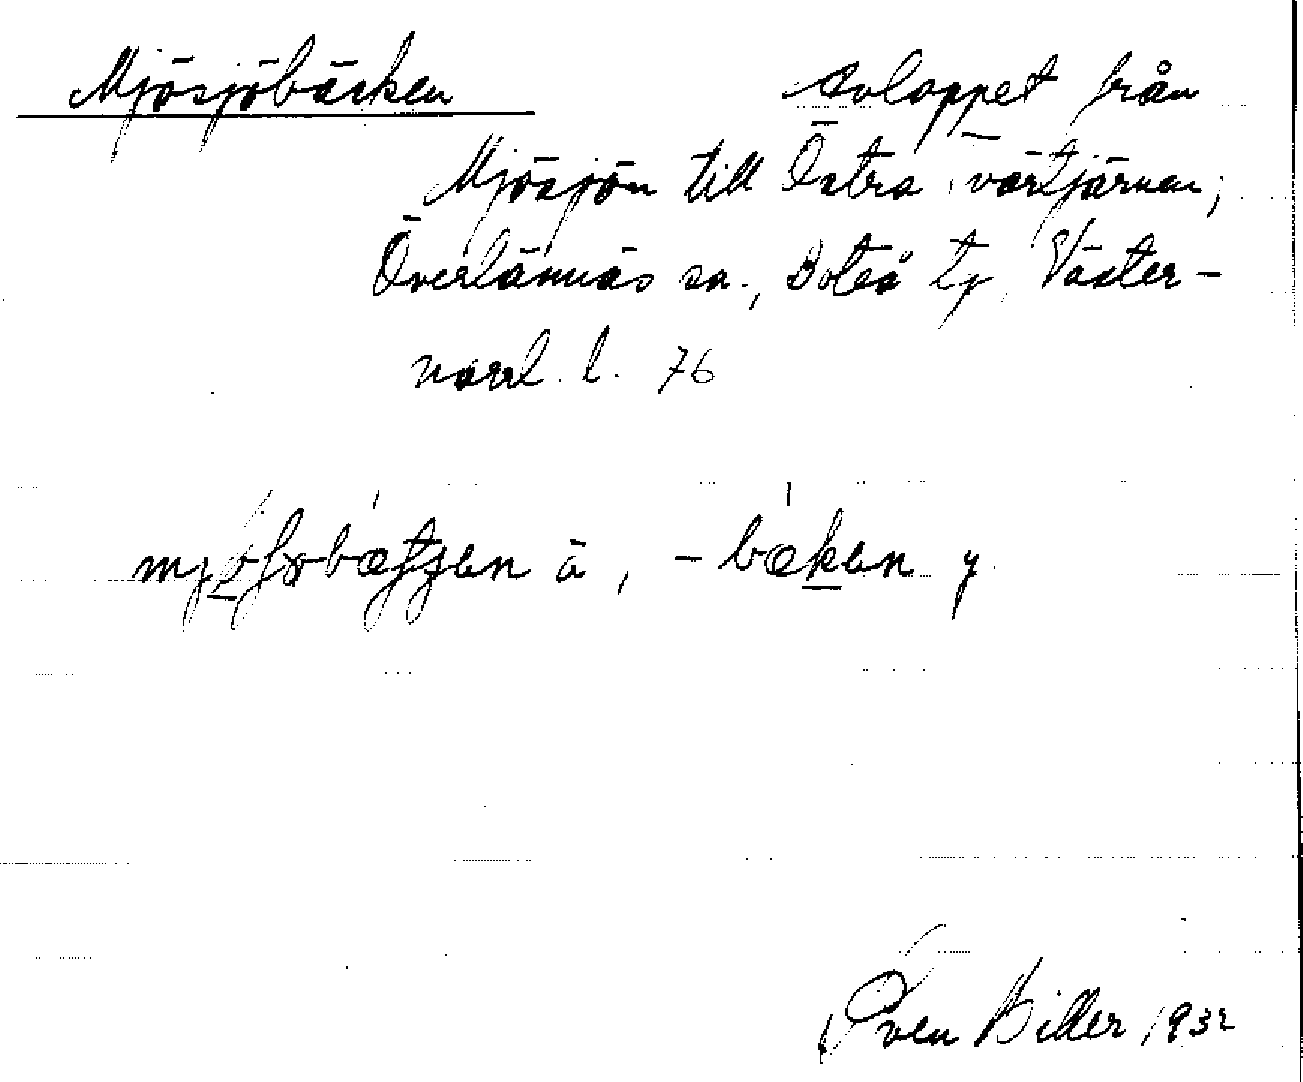 Mjösjöbäcken avloppet från
Mjösjön till Östra vartjärnen,
Överlännäs sn., Boteå tg, Väster-
norrl. l. 76
ä, -bækan y
Sven Biller 1932